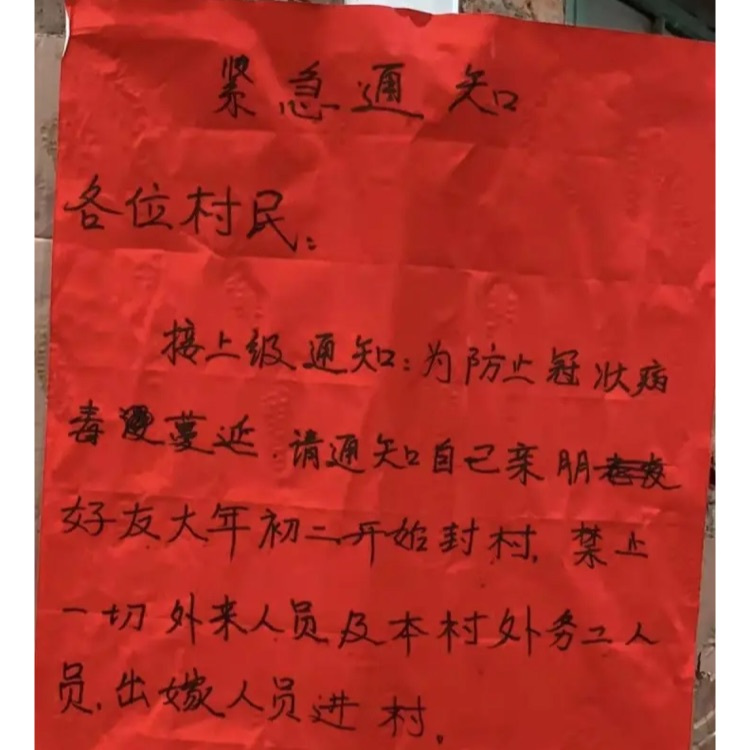 紧急通知
各位村民：
接上级通知：为防止冠状病
毒蔓延．请通知自己亲朋
好友大年初二开始封村．禁止
一切外来人员及本村外务工人
员．出嫁人员进村。